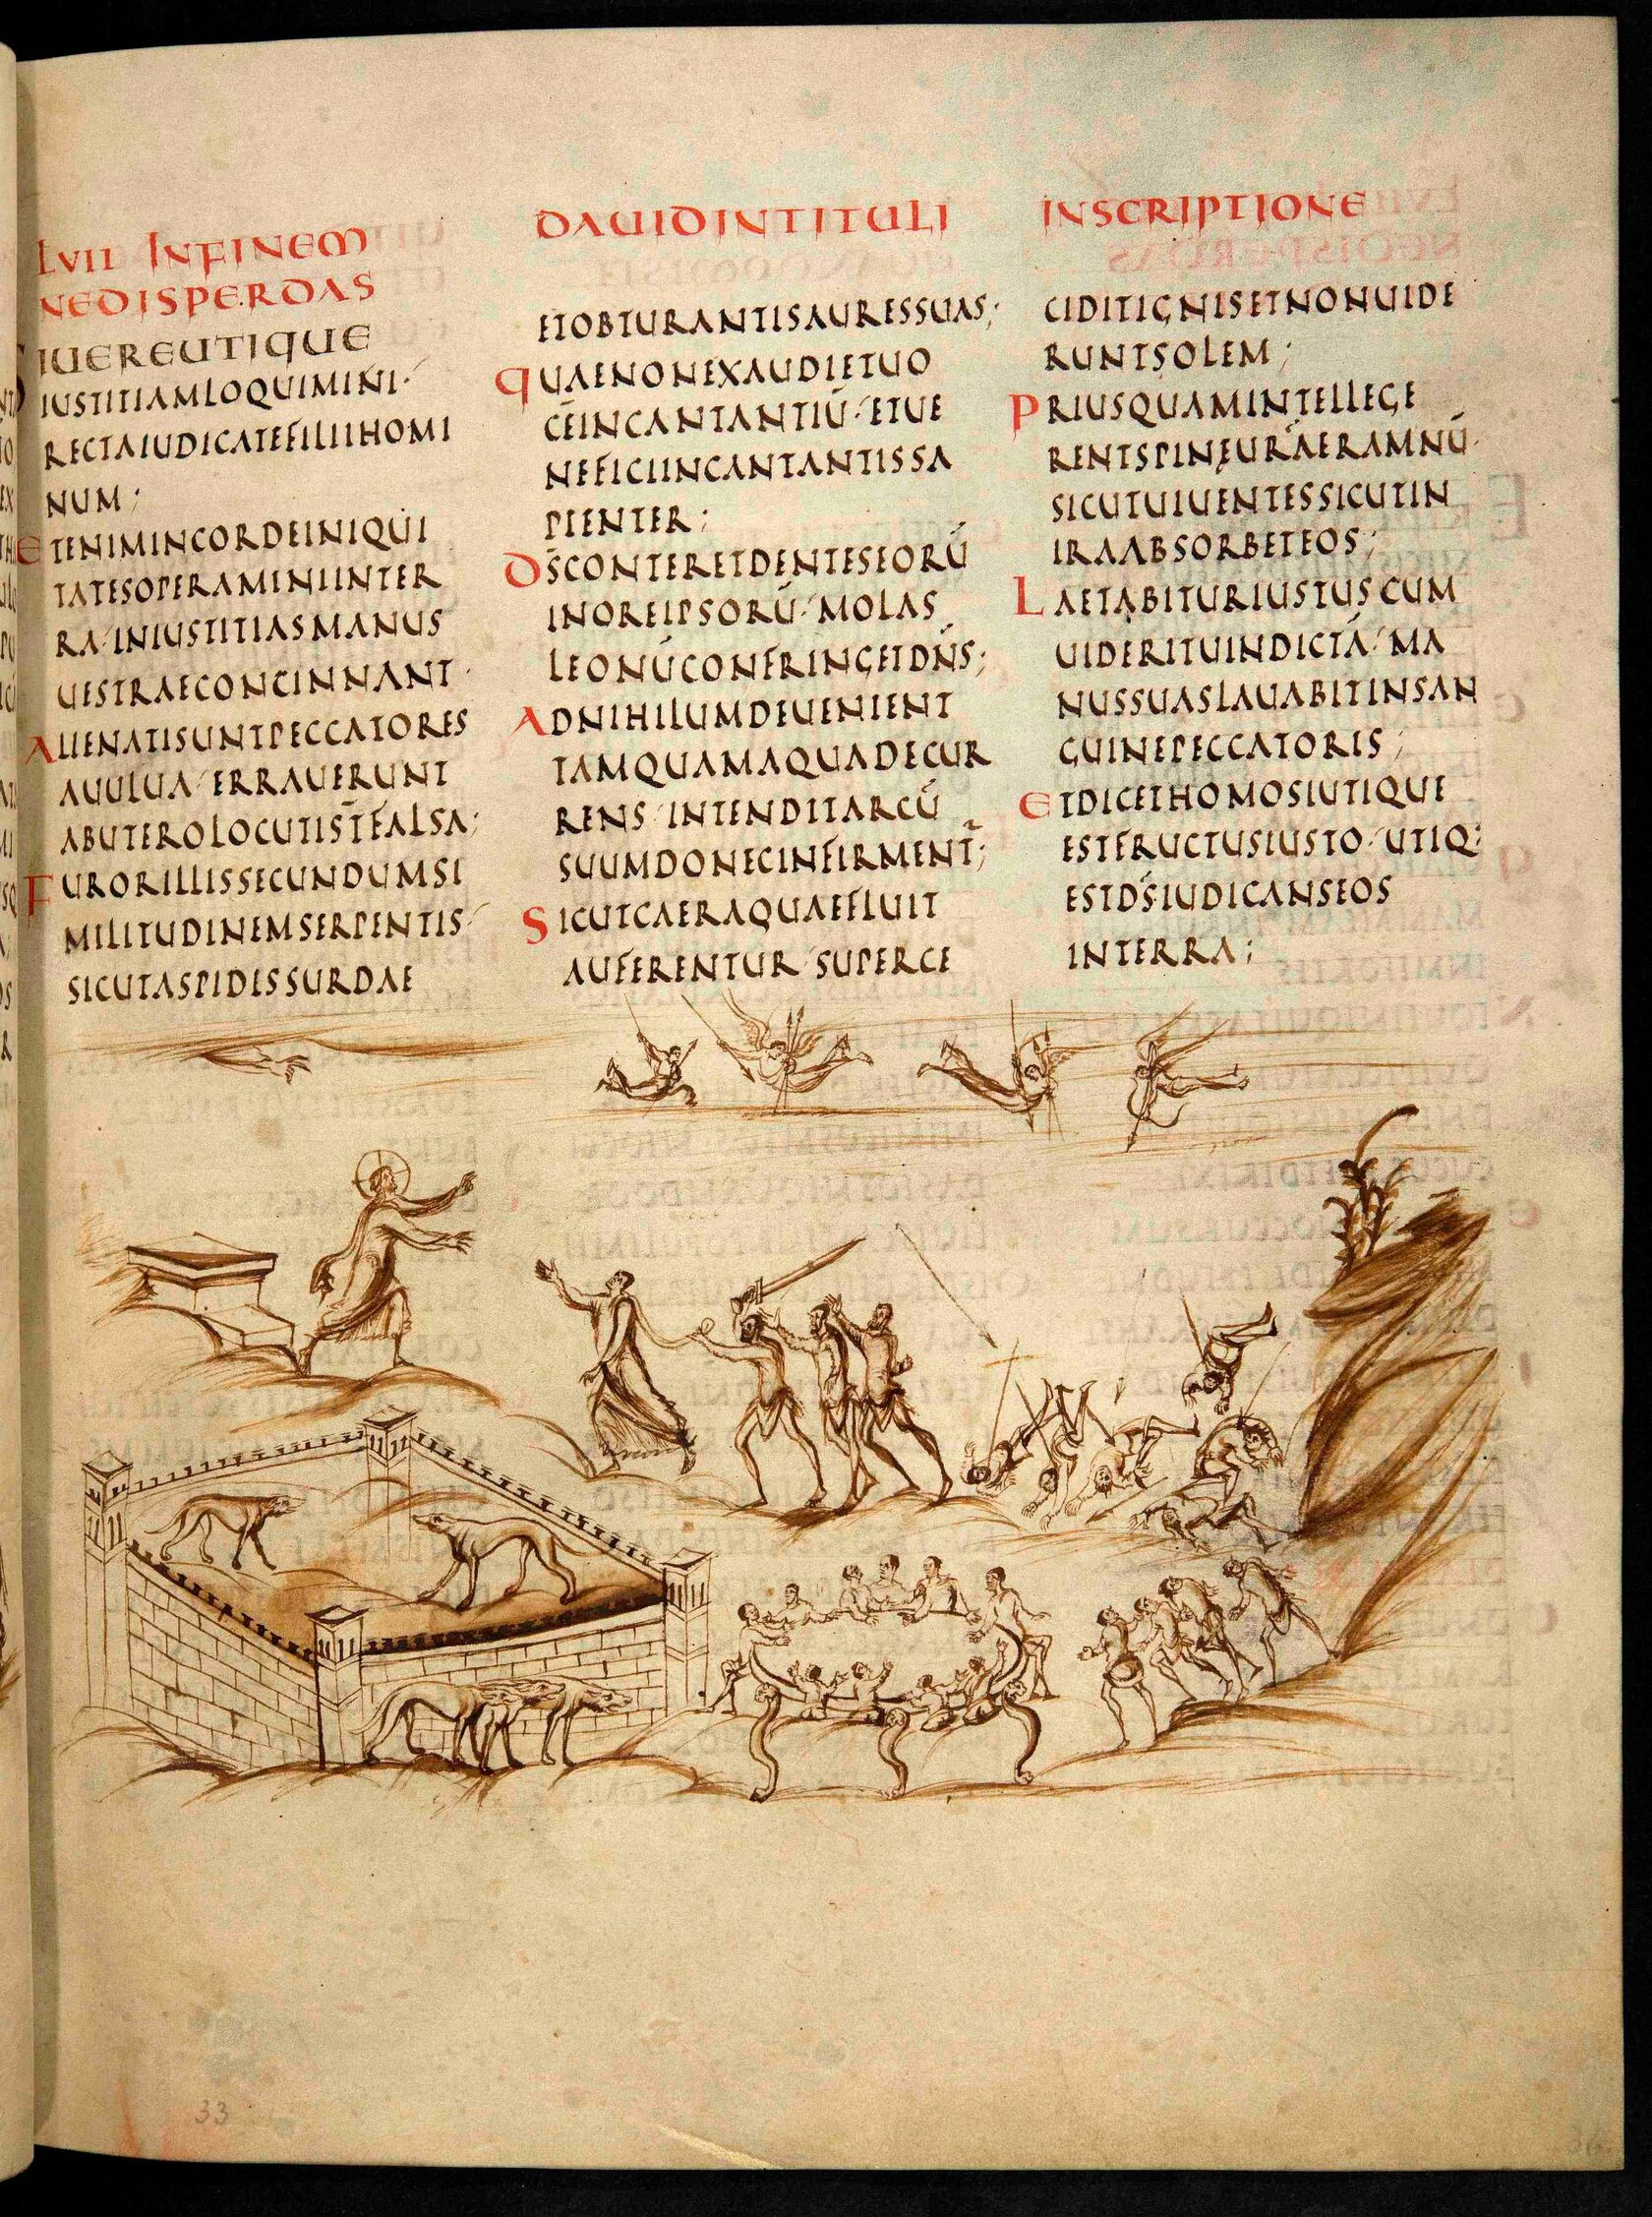 LVII INFINEM
NEDISPERDAS
SIUEREUTIQUE
IUSTITIAMLOQUIMINI·
RECTAIUDICATEFILIIHOMI
NUM;
ETENIMINCORDEINIQUI
TATESOPERAMINIINTER
RA·INIUSTITIASMANUS
UESTRAECONCINNANT·
ALIENATISUNTPECCATORES
AUULUA·ERRAUERUNT
ABUTEROLOCUTIST̄FALSA;
FURORILLISSECUNDUMSI
MILITUDINEMSERPENTIS·
SICUTASPIDISSURDAE
DAUIDINTITULI
ETOBTURANTISAURESSUAS;
QUAENONEXAUDIETUO
CĒINCANTANTIŪ·ETUE
NEFICIINCANTANTISSA
PIENTER;
DS̄CONTERETDENTESEORŪ
INOREIPSORŪ·MOLAS
LEONŪCONFRINGETDN̄S;
ADNIHILUMDEUENIENT
TAMQUAMAQUADECUR
RENS·INTENDITARCŪ
SUUMDONECINFIRMENT̄;
SICUTCAERAQUAEFLUIT
AUFERENTUR·SUPERCE
INSCRIPTIONE
CIDITIGNISETNONUIDE
RUNTSOLEM;
PRIUSQUAMINTELLEGE
RENTSPINĘURAERAMNŪ·
SICUTUIUENTESSICUTIN
IRAABSORBETEOS;
LAETABITURIUSTUSCUM
UIDERITUINDICTĀ·MA
NUSSUASLAUABITINSAN
GUINEPECCATORIS;
ETDICETHOMOSIUTIQUE
ESTFRUCTUSIUSTO·UTIQ:
ESTDS̄IUDICANSEOS
INTERRA;
33